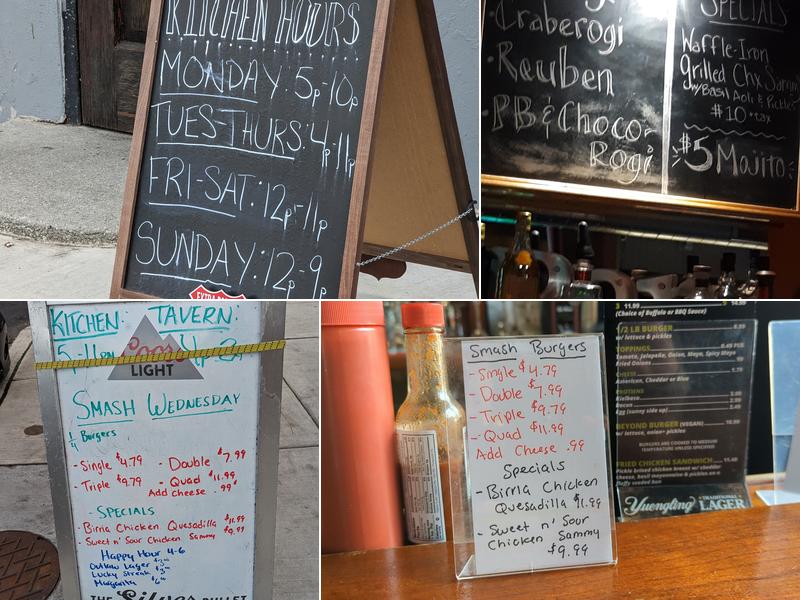 KITCHEN HOURS
MONDAY: 5p-10p
TUES-THURS: 4p-11p
FRI-SAT: 12p-11p
SUNDAY: 12p-9p
-Craberogi
-Reuben
-PB & Choco-
Rogi
SPECIALS
Waffle-Iron
Grilled Chx
w/Basil Aoli & Pickles
$10 +tax
$5 Mojito
KITCHEN: TAVERN:
LIGHT
SMASH WEDNESDAY
1/4 Burgers
-Single $4.79 - Double $7.99
-Triple $9.79 - Quad $11.99
Add Cheese .99
-SPECIALS
-Birria Chicken Quesadilla $11.99
-Sweet n' Sour Chicken Sammy $9.99
Happy Hour 4-6
Outlaw Lager
Lucky Streak
Margarita
THE Silver BULLET
Smash Burgers
-Single $4.79
-Double $7.99
-Triple $9.79
-Quad $11.99
Add Cheese .99
Specials
-Birria Chicken
Quesadilla $11.99
-Sweet n' Sour
Chicken Sammy
$9.99
(Choice of Buffalo or BBQ Sauce)
1/2 LB BURGER
w/ lettuce & pickles
TOPPINGS
Tomato, Jalapeño, Onion, Mayo, Spicy Mayo
Fried Onions
CHEESE
American, Cheddar or Bleu
PROTEINS
Kielbasa
Bacon
Egg (sunny side up)
BEYOND BURGER (VEGAN)
w/ lettuce, onion+ pickles
BURGERS ARE COOKED TO MEDIUM
TEMPERATURE UNLESS SPECIFIED
FRIED CHICKEN SANDWICH
Pickle brined chicken breast w/ cheddar
cheese, basil mayonnaise & pickles on a
fluffy seeded bun
Yuengling TRADITIONAL LAGER